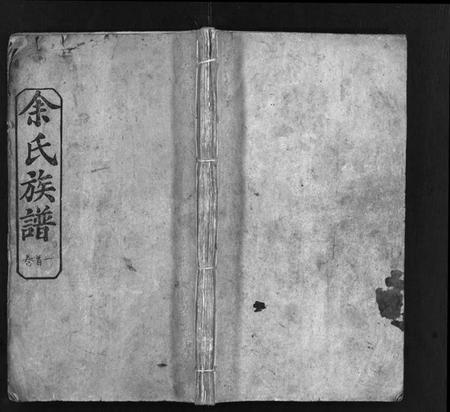 余氏族譜
卷首一